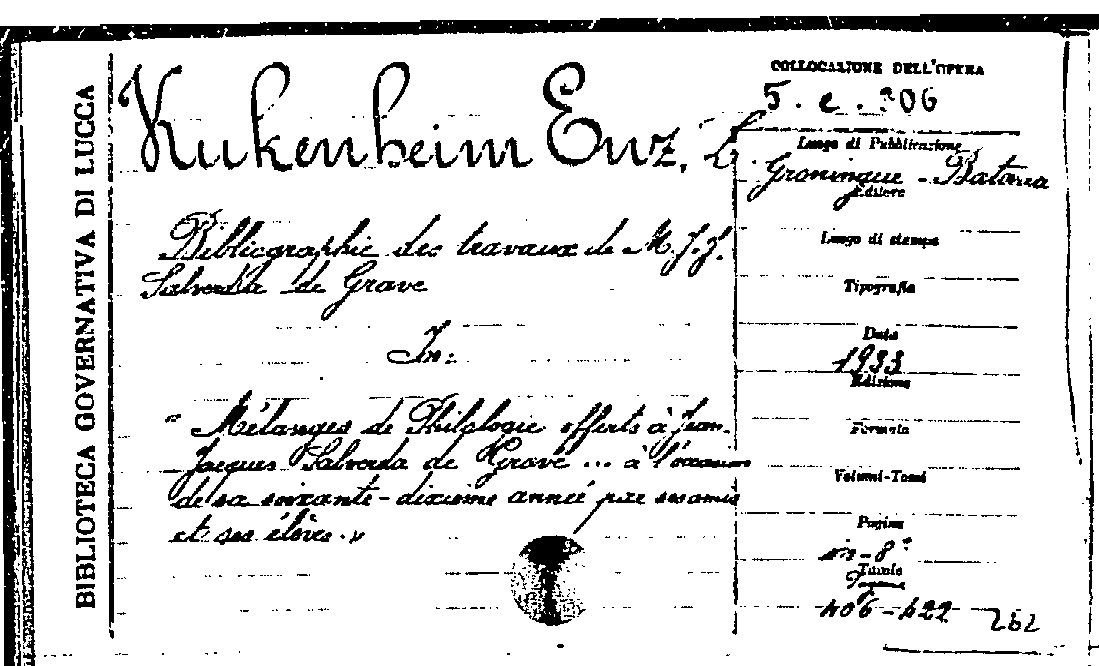 BIBLIOTECA GOVERNATIVA DI LUCCA
Kukenheim Enz, L.
Bibliographie des travaux de M. J. J.
Salverda de Grave
In:
" Mélanges de Philologie offerts à Jean-
Jacques Salverda de Grave ... à l'occasion
de sa soixante-dixième année par ses amis
et ses élèves. »
COLLOCAZIONE DELL'OPERA
5. e. 206
Luogo di Pubblicazione
Groningue - Batavia
Editore
Luogo di stampa
Tipografia
Data
1933
Edizione
Formato
Volumi-Tomi
Pagine
in-8°
Pagine
406-422
262